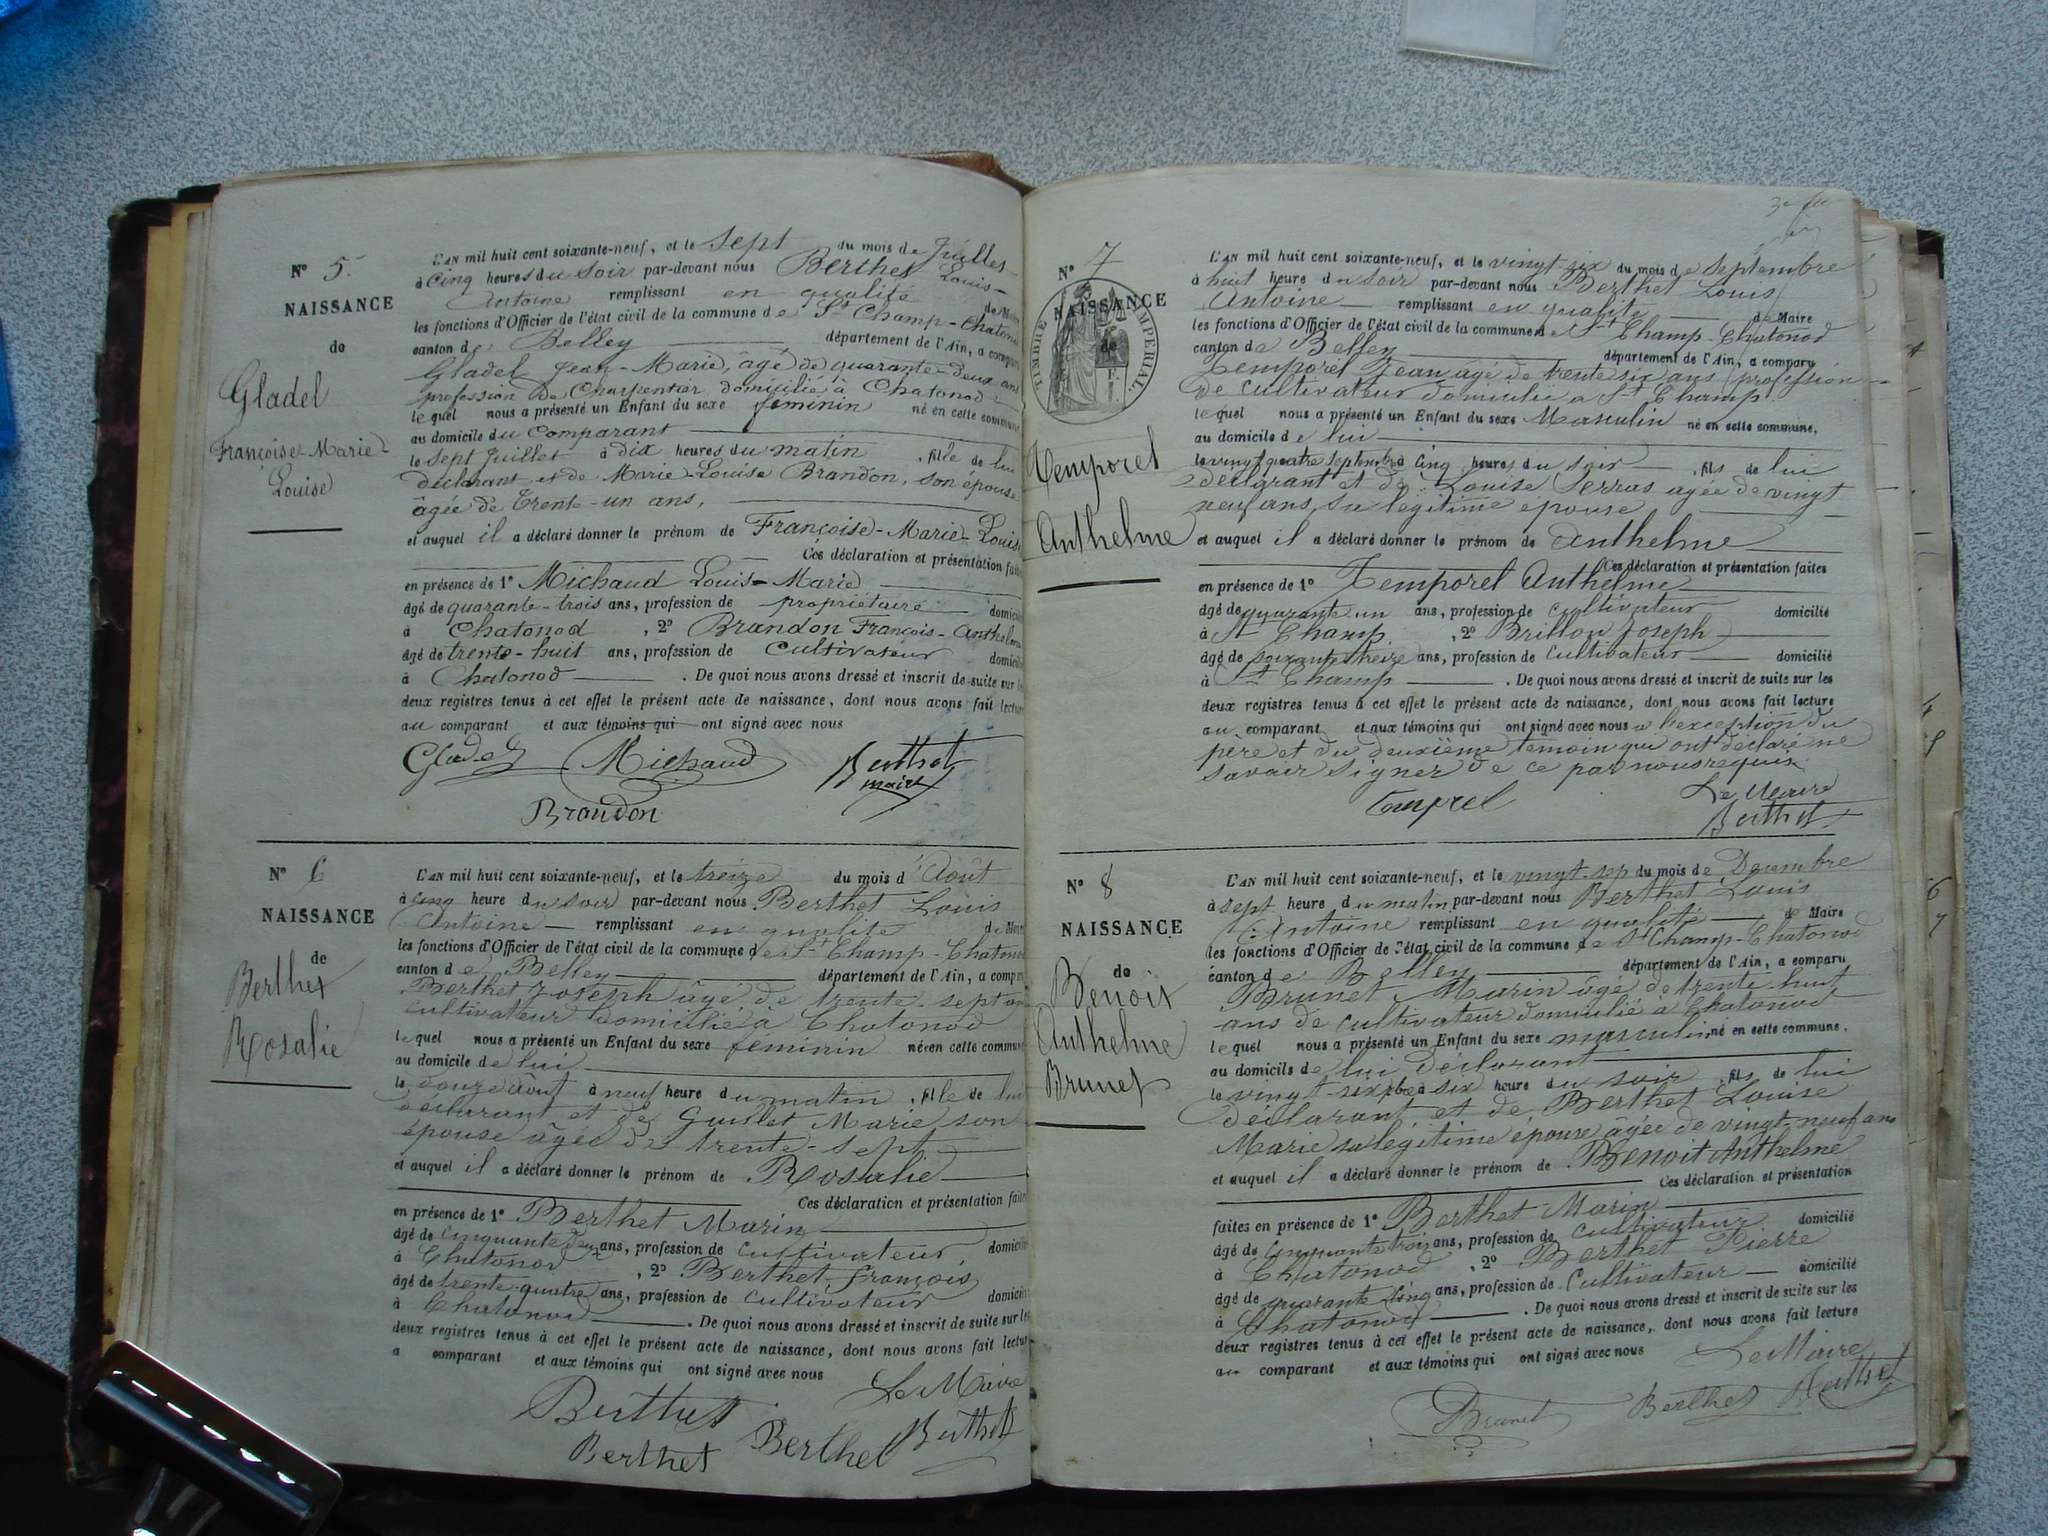 N° 5.
NAISSANCE
de
Gladel
Françoise-Marie
Louise
L'AN mil huit cent soixante-neuf, et le sept du mois de Juillet
à cinq heures du soir par-devant nous Berthet Louis-
Antoine remplissant en qualité de Maire
les fonctions d'Officier de l'état civil de la commune de St Champ-Chatonod
canton de Belley département de l'Ain, a comparu
Gladel Jean-Marie, âgé de quarante-deux ans
profession de Charpentier domicilié à Chatonod
lequel nous a présenté un Enfant du sexe féminin né en cette commune
au domicile du comparant
le sept Juillet à dix heures du matin, fille de lui
déclarant et de Marie-Louise Brandon, son épouse
âgée de trente-un ans,
et auquel il a déclaré donner le prénom de Françoise-Marie-Louise
Ces déclaration et présentation faites
en présence de 1° Michaud Louis-Marie
âgé de quarante-trois ans, profession de propriétaire domicilié
à Chatonod, 2° Brandon François-Anthelme
âgé de trente-huit ans, profession de cultivateur domicilié
à Chatonod. De quoi nous avons dressé et inscrit de suite sur les
deux registres tenus à cet effet le présent acte de naissance, dont nous avons fait lecture
au comparant et aux témoins qui ont signé avec nous
Gladel Michaud Berthet
maire
Brandon
N° 6
NAISSANCE
de
Berthet
Rosalie
L'AN mil huit cent soixante-neuf, et le treize du mois d'Août
à cinq heure du soir par-devant nous Berthet Louis
Antoine remplissant en qualité de Maire
les fonctions d'Officier de l'état civil de la commune de St Champ-Chatonod
canton de Belley département de l'Ain, a comparu
Berthet Joseph âgé de trente-sept ans
cultivateur domicilié à Chatonod
lequel nous a présenté un Enfant du sexe féminin né en cette commune
au domicile de lui
le douze août à neuf heure du matin, fille de lui
déclarant et de Guillet Marie son
épouse âgée de trente-sept
et auquel il a déclaré donner le prénom de Rosalie
Ces déclaration et présentation faites
en présence de 1° Berthet Marin
âgé de cinquante deux ans, profession de cultivateur domicilié
à Chatonod, 2° Berthet François
âgé de trente-quatre ans, profession de cultivateur domicilié
à Chatonod. De quoi nous avons dressé et inscrit de suite sur les
deux registres tenus à cet effet le présent acte de naissance, dont nous avons fait lecture
a comparant et aux témoins qui ont signé avec nous
Le Maire
Berthet Berthet
Berthet Berthet
N° 7
NAISSANCE
de
TIMBRE IMPÉRIAL
Temporel
Anthelme
L'AN mil huit cent soixante-neuf, et le vingt six du mois de Septembre
à huit heure du soir par-devant nous Berthet Louis
Antoine remplissant en qualité de Maire
les fonctions d'Officier de l'état civil de la commune de St Champ-Chatonod
canton de Belley département de l'Ain, a comparu
Temporel Jean âgé de trente six ans profession
de cultivateur domicilié à St Champ
lequel nous a présenté un Enfant du sexe Masculin né en cette commune.
au domicile de lui
le vingt quatre septembre à cinq heures du soir, fils de lui
déclarant et de Louise Serras agée de vingt
neuf ans, sa légitime épouse
et auquel il a déclaré donner le prénom de Anthelme
Ces déclaration et présentation faites
en présence de 1° Temporel Anthelme
âgé de quarante un ans, profession de cultivateur domicilié
à St Champ, 2° Brillon Joseph
âgé de soixante treize ans, profession de cultivateur domicilié
à St Champ. De quoi nous avons dressé et inscrit de suite sur les
deux registres tenus à cet effet le présent acte de naissance, dont nous avons fait lecture
au comparant et aux témoins qui ont signé avec nous a l'exception du
père et du deuxième temoin qui ont déclaré ne
savoir signer de ce par nous requis
Le Maire
Berthet
N° 8
NAISSANCE
de
Benoit
Anthelme
Brunet
L'AN mil huit cent soixante-neuf, et le vingt-sep du mois de Decembre
à sept heure du matin par-devant nous Berthet Louis
Antoine remplissant en qualité de Maire
les fonctions d'Officier de l'état civil de la commune de St Champ-Chatonod
canton de Belley département de l'Ain, a comparu
Brunet Marin âgé de trente huit
ans de cultivateur domicilié à Chatonod
lequel nous a présenté un Enfant du sexe masculin né en cette commune.
au domicile de lui déclarant
le vingt-six xbre à six heure du soir, fils de lui
déclarant et de Berthet Louise
Marie sa légitime épouse agée de vingt-neuf ans
et auquel il a déclaré donner le prénom de Benoit Anthelme
Ces déclaration et présentation
faites en présence de 1° Berthet Marin
âgé de cinquante trois ans, profession de cultivateur domicilié
à Chatonod, 2° Berthet Pierre
âgé de quarante cinq ans, profession de cultivateur domicilié
à Chatonod. De quoi nous avons dressé et inscrit de suite sur les
deux registres tenus à cet effet le présent acte de naissance, dont nous avons fait lecture
au comparant et aux témoins qui ont signé avec nous
Le Maire
Brunet Berthet Berthet